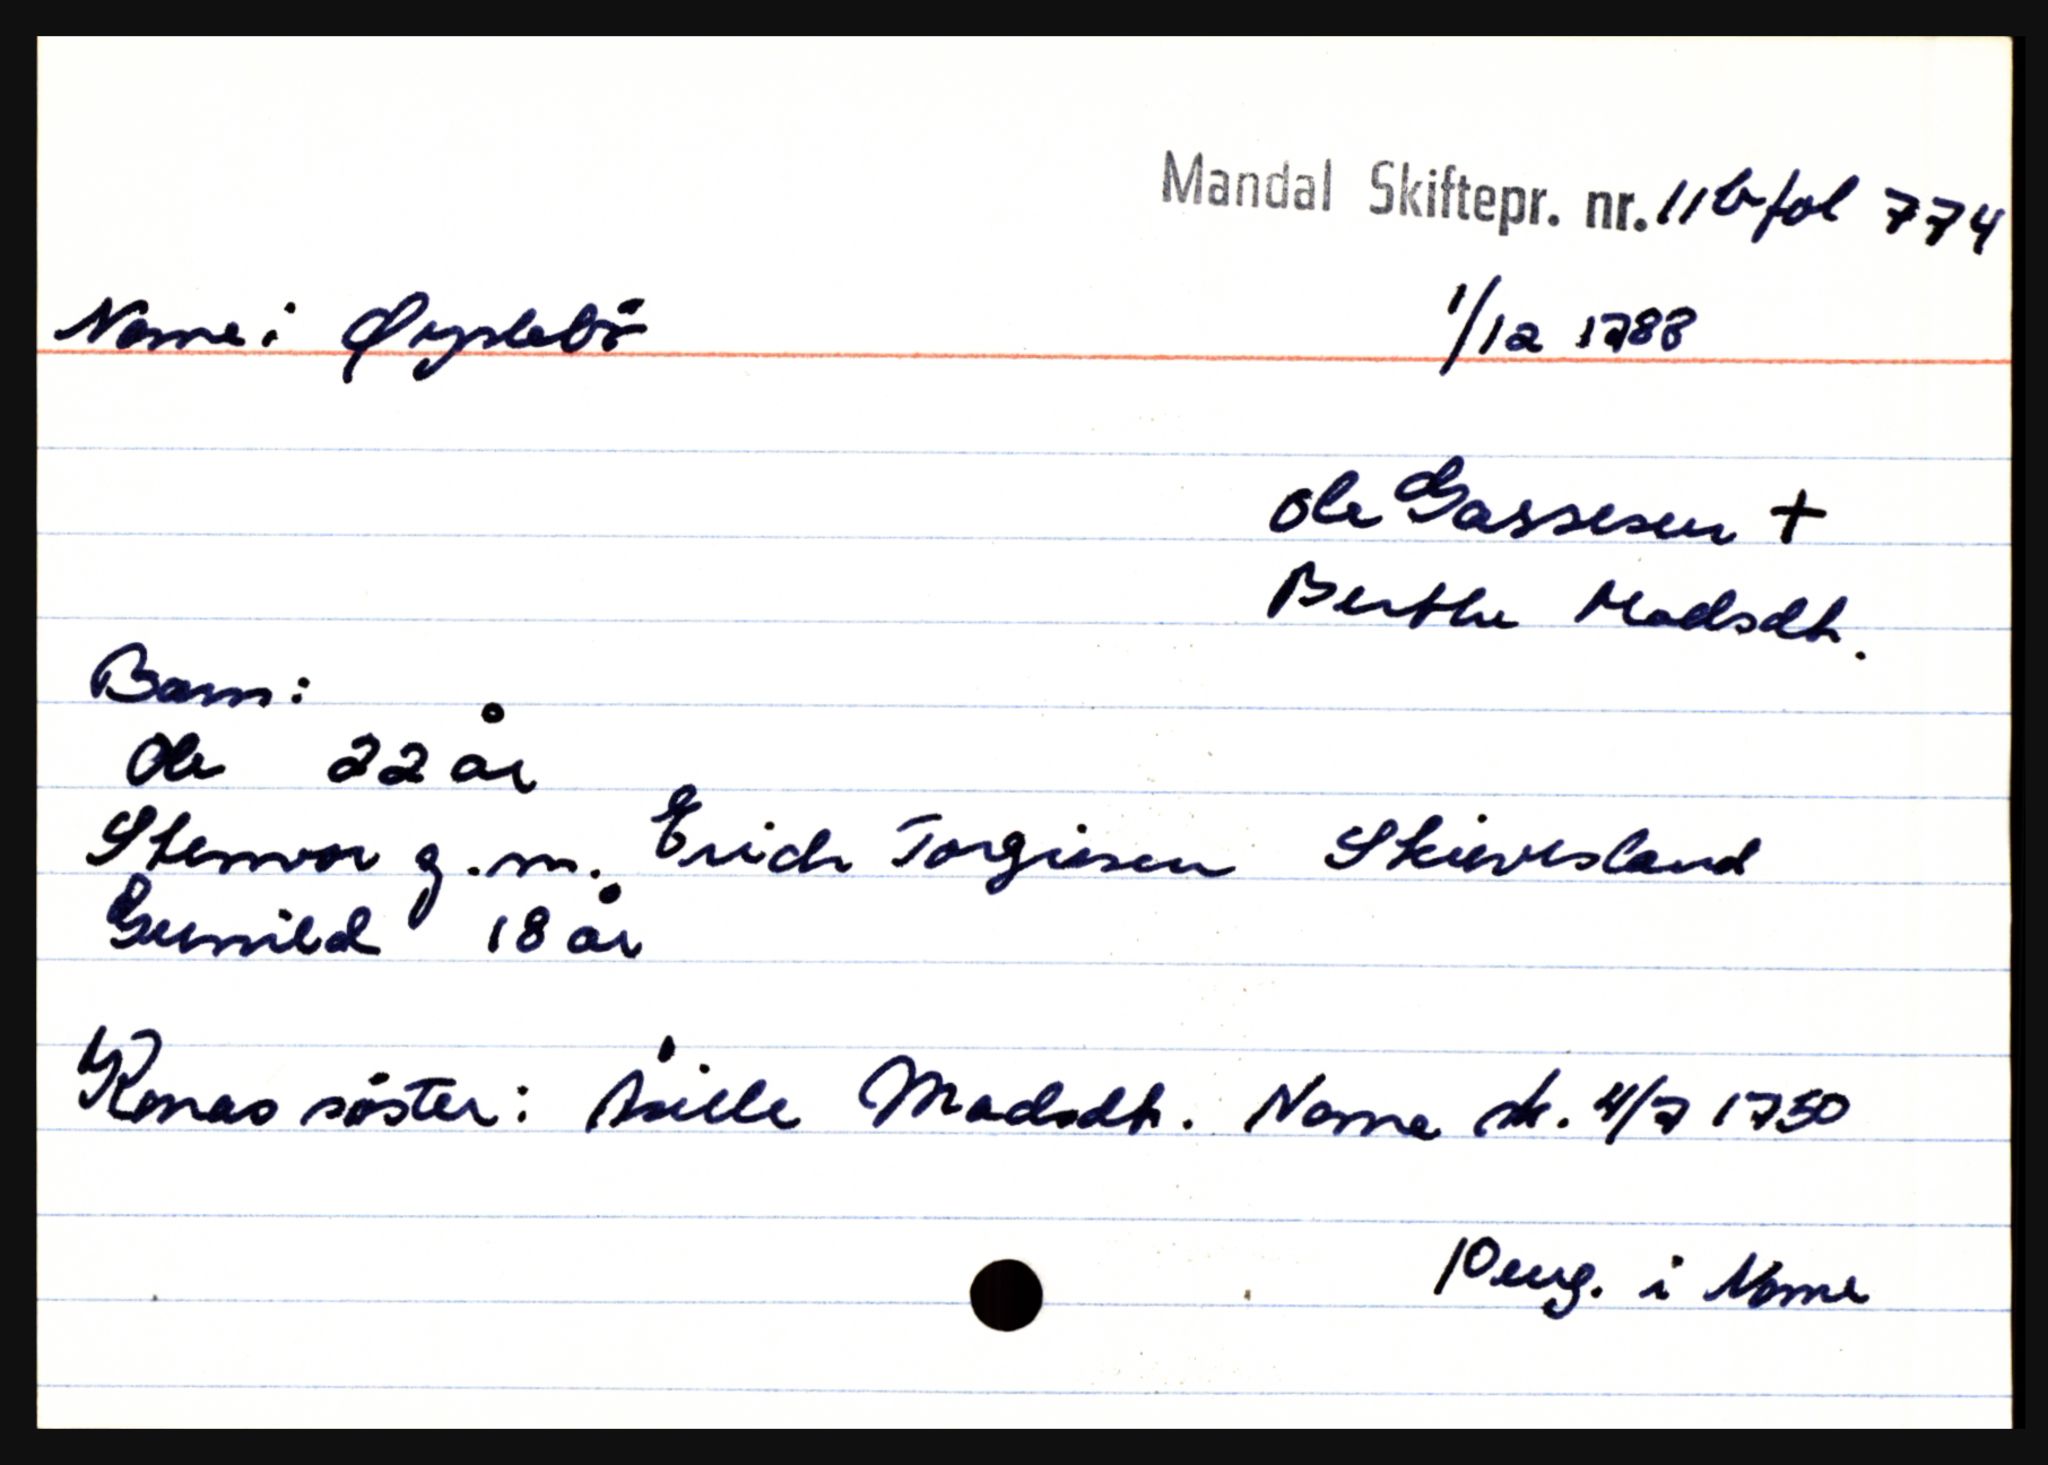 Mandal Skiftepr. nr. 11b fol 774
Nome i Øyslebö 1/12 1788
Ole Gassesen +
Berthe Madsdt.
Barn:
Ole 22 år
Stenvor g.m. Erich Torgiesen Skievesland
Gunnild 18 år
Konas söster: Åsille Madsdt. Nome sk. 4/7 1750
Peng. i Nome